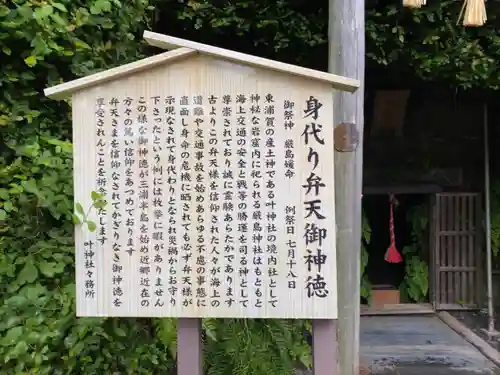 身代り弁天御神徳
御祭神　厳島媛命　例祭日　七月十八日
東浦賀の産土神である叶神社の境内社として
神秘な岩窟内に祀られる厳島神社はもともと
海上交通の安全と戦等の勝運を司る神として
尊崇されており誠に霊験あらたかであります
過去この弁天様を信仰された人々が海上の
遭難や交通事故を始めあらゆる不慮の事態に
直面し身命の危機に晒されても必ず弁天様が
示現なされて身代わりとなられ災禍からお守り
下さったという例には枚挙に暇がありません
この様な御神徳が三浦半島を始め近郷近在の
方々の篤い信仰をあつめております
弁天さまを信仰なされてかぎりなき御神徳を
享受されんことを祈念いたします
叶神社々務所